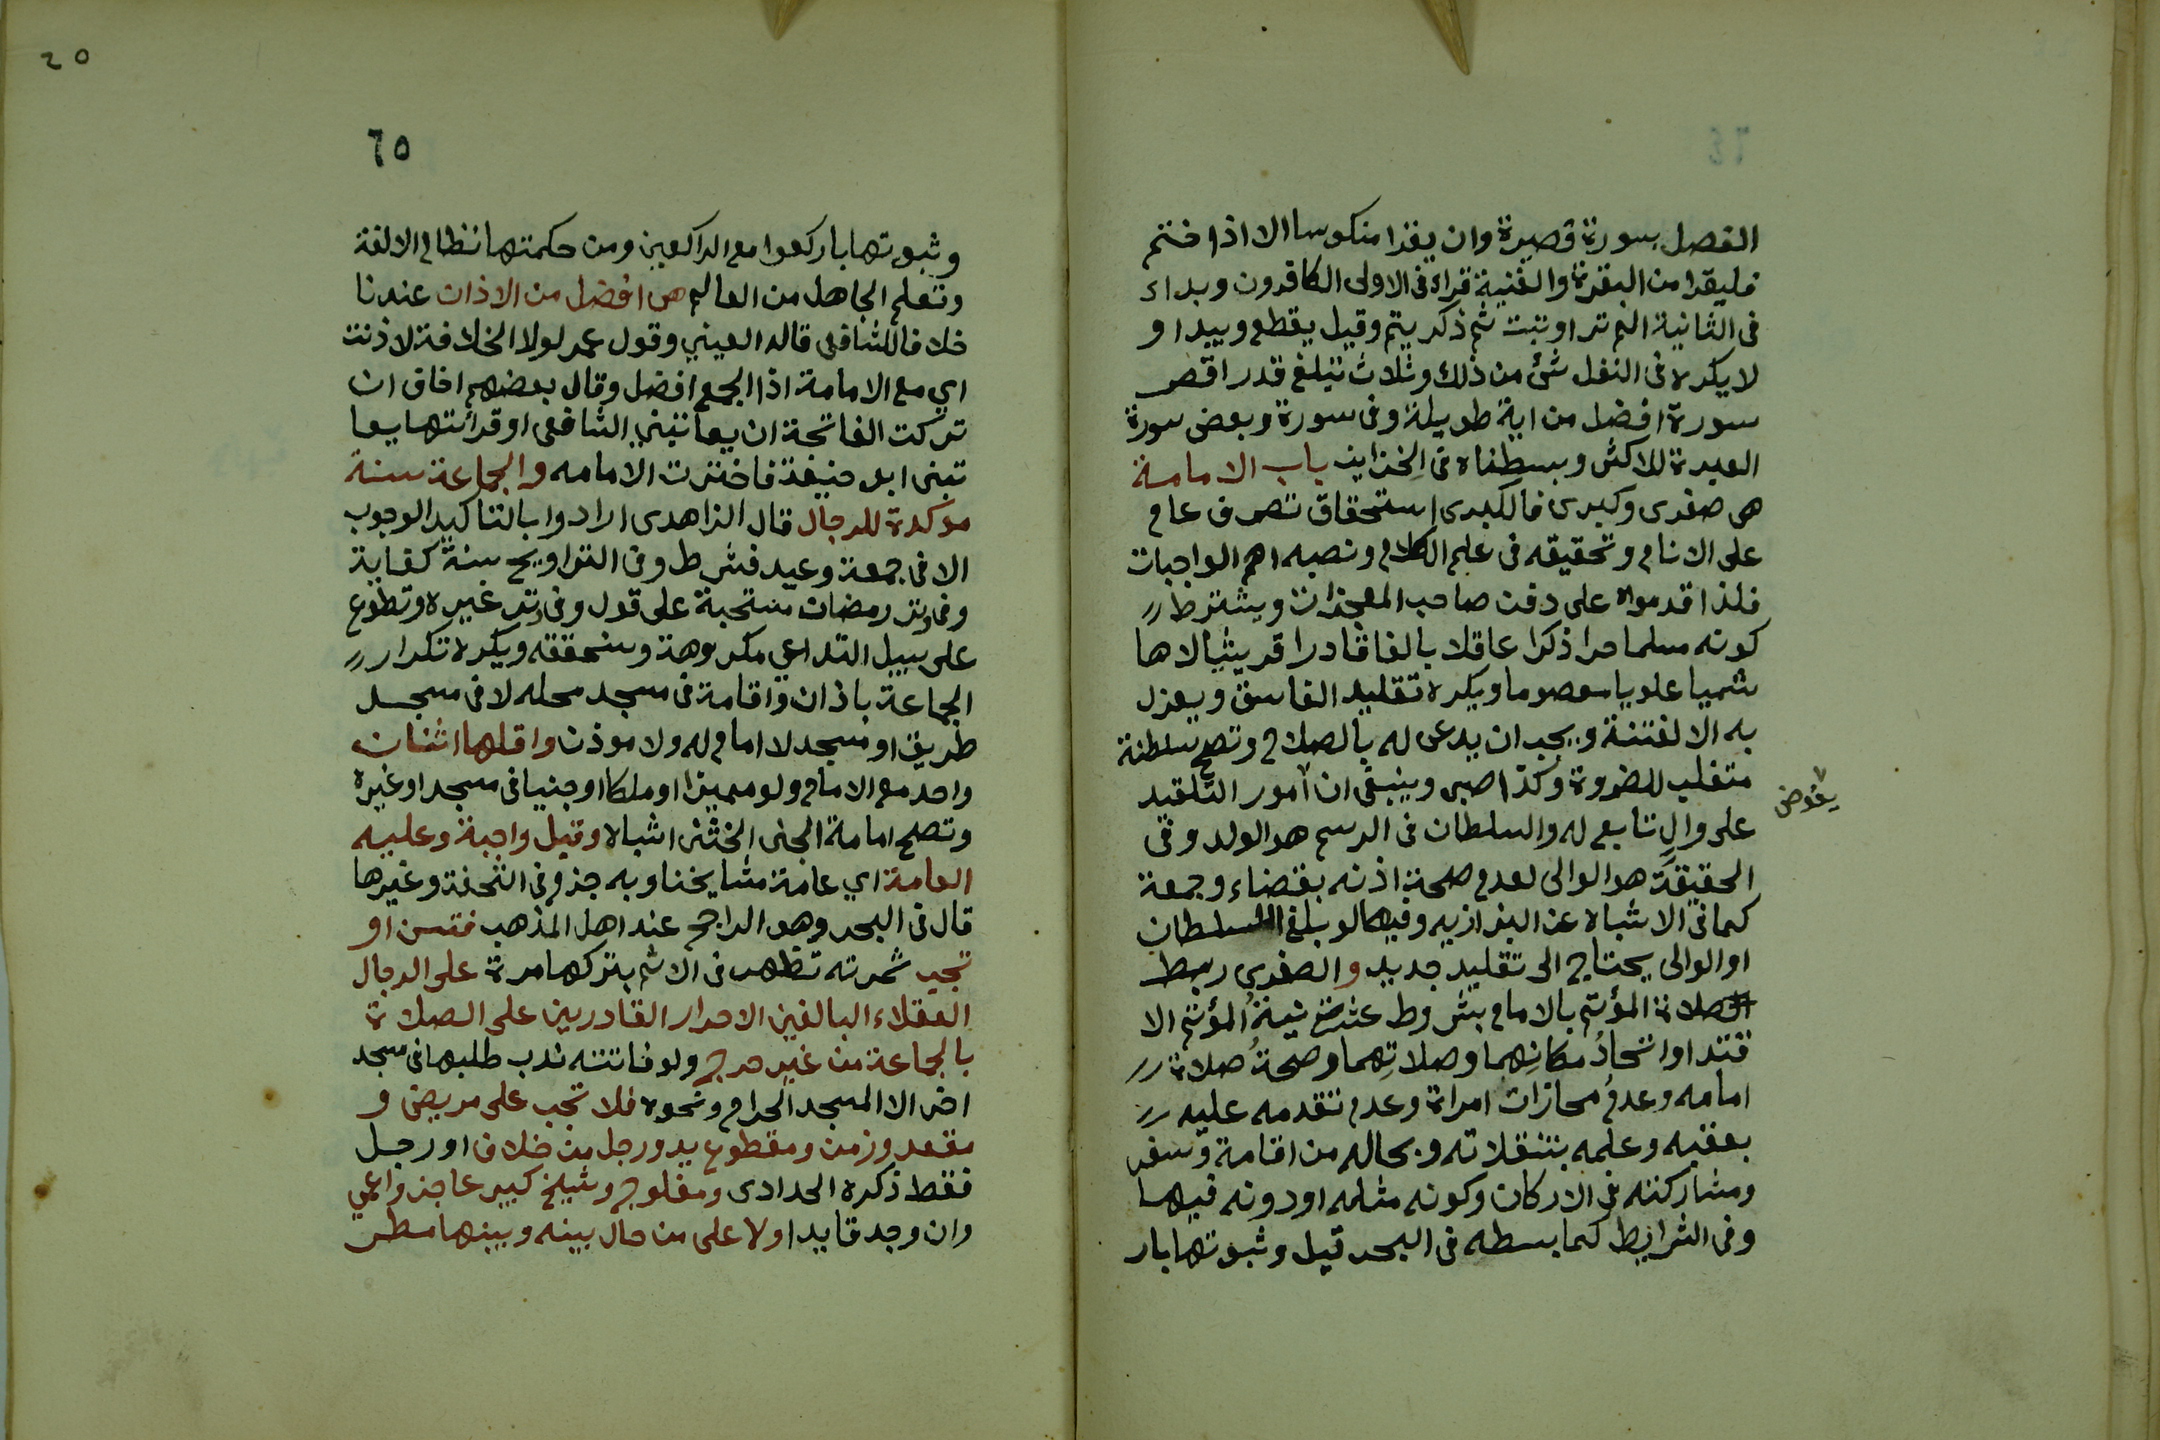 ٦٤
الفصل بسورة قصيرة وان يقرا منكوسا الا اذا ختم
فليقرا من البقرة والقنية قراء فى الاولى الكافرون وبداء
فى الثانية الم تر او تبت ثم ذكر يتم وقيل يقطع ويبدا و
لا يكره فى النفل شئ من ذلك وثلاث تبلغ قدر اقصر
سورة افضل من اية طويلة وفى سورة وبعض سورة
العبرة للاكثر وبسطناه فى الخزاين باب الامامة
هى صغرى وكبرى فالكبرى استحقاق تصرف عام
على الانام وتحقيقه فى علم الكلام ونصبه اهم الواجبات
فلذا قدموه على دفن صاحب المعجزات ويشترط
كونه مسلما حرا ذكرا عاقلا بالغا قادرا قريشيا لا ها
شميا علويا معصوما ويكره تقليد الفاسق ويعزل
به الا لفتنة ويجب ان يدعى له بالصلاح وتصح سلطنة
متغلب للضروة وكذا صبى وينبغى ان امور التلقيد
يفوض
على وال تابع له والسلطان فى الرسم هو الولد وفى
الحقيقة هو الوالى لعدم صحة اذنه بقضاء وجمعة
كما فى الاشباه عن البزازيه وفيها لو بلغ السلطان
او الوالى يحتاج الى تقليد جديد والصغرى ربط
صلاة المؤتم بالامام بشروط عشر نية المؤتم الا
قتدا واتحاد مكانهما وصلاتهما وصحة صلاة
امامه وعدم محازات امراة وعدم تقدمه عليه
بعقبه وعلمه بتنقلاته وبحاله من اقامة وسفر
ومشاركته فى الاركان وكونه مثله او دونه فيها
وفى الشرايط كما بسطه فى البحر قيل وثبوتها بار
٢٥
٦٥
وثبوتها باركعوا مع الراكعين ومن حكمتها نظام الالفة
وتعلم الجاهل من العالم هى افضل من الاذان عندنا
خلافا للشافعى قاله العينى وقول عمر لولا الخلافة لاذنت
اي مع الامامة اذا الجمع افضل وقال بعضهم اخاف ان
تركت الفاتحة ان يعاتبني الشافعى او قرأتها يعا
تبنى ابو حنيفة فاخترت الامامه والجماعة سنة
موكدة للرجال قال الزاهدى ارادوا بالتاكيد الوجوب
الا فى جمعة وعيد فشرط وفى التراويح سنة كفاية
وفى وتر رمضان مستحبة على قول وفى وتر غيره وتطوع
على سبيل التداعي مكروهة وسنحققه ويكره تكرار
الجماعة باذان واقامة فى مسجد محله لا فى مسجد
طريق او مسجد لا امام له ولا موذن واقلها اثنان
واحد مع الامام ولو مميزا او ملكا او جنيا فى مسجد او غيره
وتصح امامة الجنى الخثنى اشباه وقيل واجبة وعليه
العامة اي عامة مشايخنا وبه جزم فى التحفة وغيرها
قال فى البحر وهو الراجح عند اهل المذهب فتسن او
تجب ثمرته تظهر فى الاثم بتركها مرة على الرجال
العقلاء البالغين الاحرار القادرين على الصلاة
بالجماعة من غير حرج ولو فاتته ندب طلبها فى مسجد
اخر الا المسجد الحرام ونحوه فلا تجب على مريض و
مقعد وزمن ومقطوع يد ورجل من خلاف او رجل
فقط ذكره الحدادى ومفلوج وشيخ كبير عاجز واعمي
وان وجد قايدا ولا على من حال بينه وبينها مطر